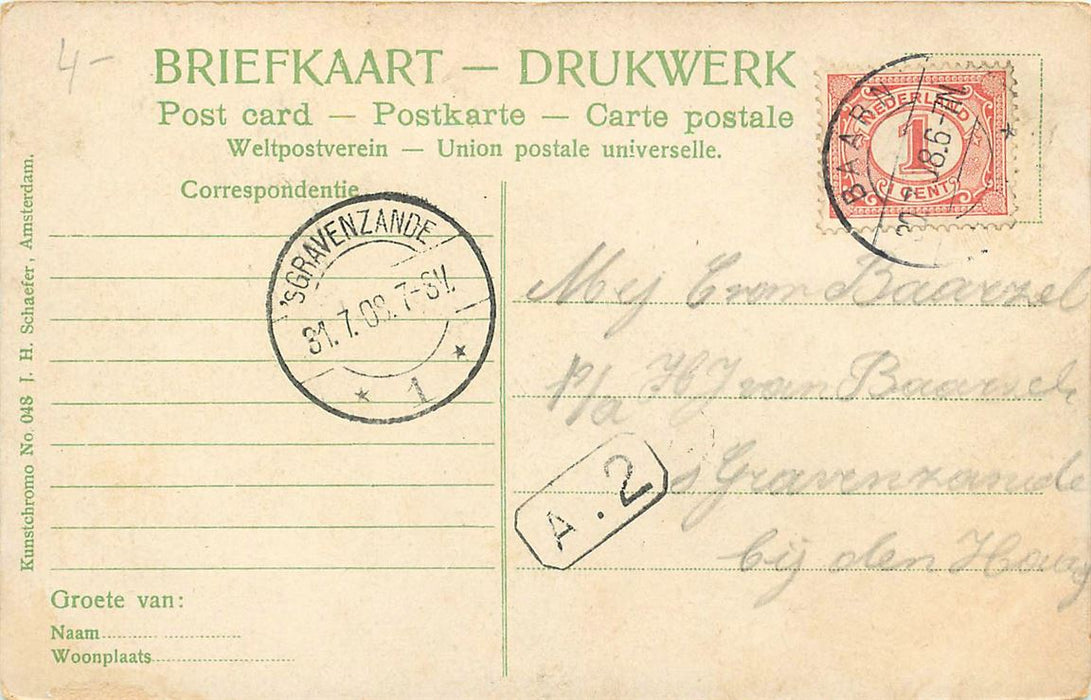 4-
BRIEFKAART — DRUKWERK
Post card — Postkarte — Carte postale
Weltpostverein — Union postale universelle.
Correspondentie
NEDERLAND
1
1 CENT
BAARN
8.6-N
'SGRAVENZANDE
31.7.08.7-8V.
1
Mej C van Baarzel
p/a HJ van Baarzel
A.2
s Gravenzande
bij den Haag
Groete van:
Naam
Woonplaats
Kunstchromo No. 048 J. H. Schaefer, Amsterdam.